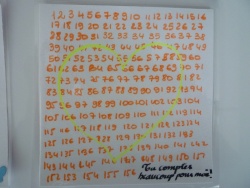 1 2 3 4 5 6 7 8 9 10 11 12 13 14 15 16
17 18 19 20 21 22 23 24 25 26 27
28 29 30 31 32 33 34 35 36 37 38
39 40 44 45 46 47 48 49
50 52 53 54 55 56 57 58 59 60
61 62 63 64 65 66 67 68 69 70 71
72 73 74 75 76 77 78 79 80 81 82
83 84 85 86 87 88 89 90 91 92 93 94
95 96 97 98 99 100 101 102 103 104
105 106 107 108 109 110 111 112 113 114
115 116 117 118 119 120 121 122 123 124
125 126 127 128 129 130 131 132 133
134 135 136 137 139 140 141 142
143 144 145 146 147 148 149 150 151
152 153 154 155 156
Tu comptes
beaucoup pour moi!